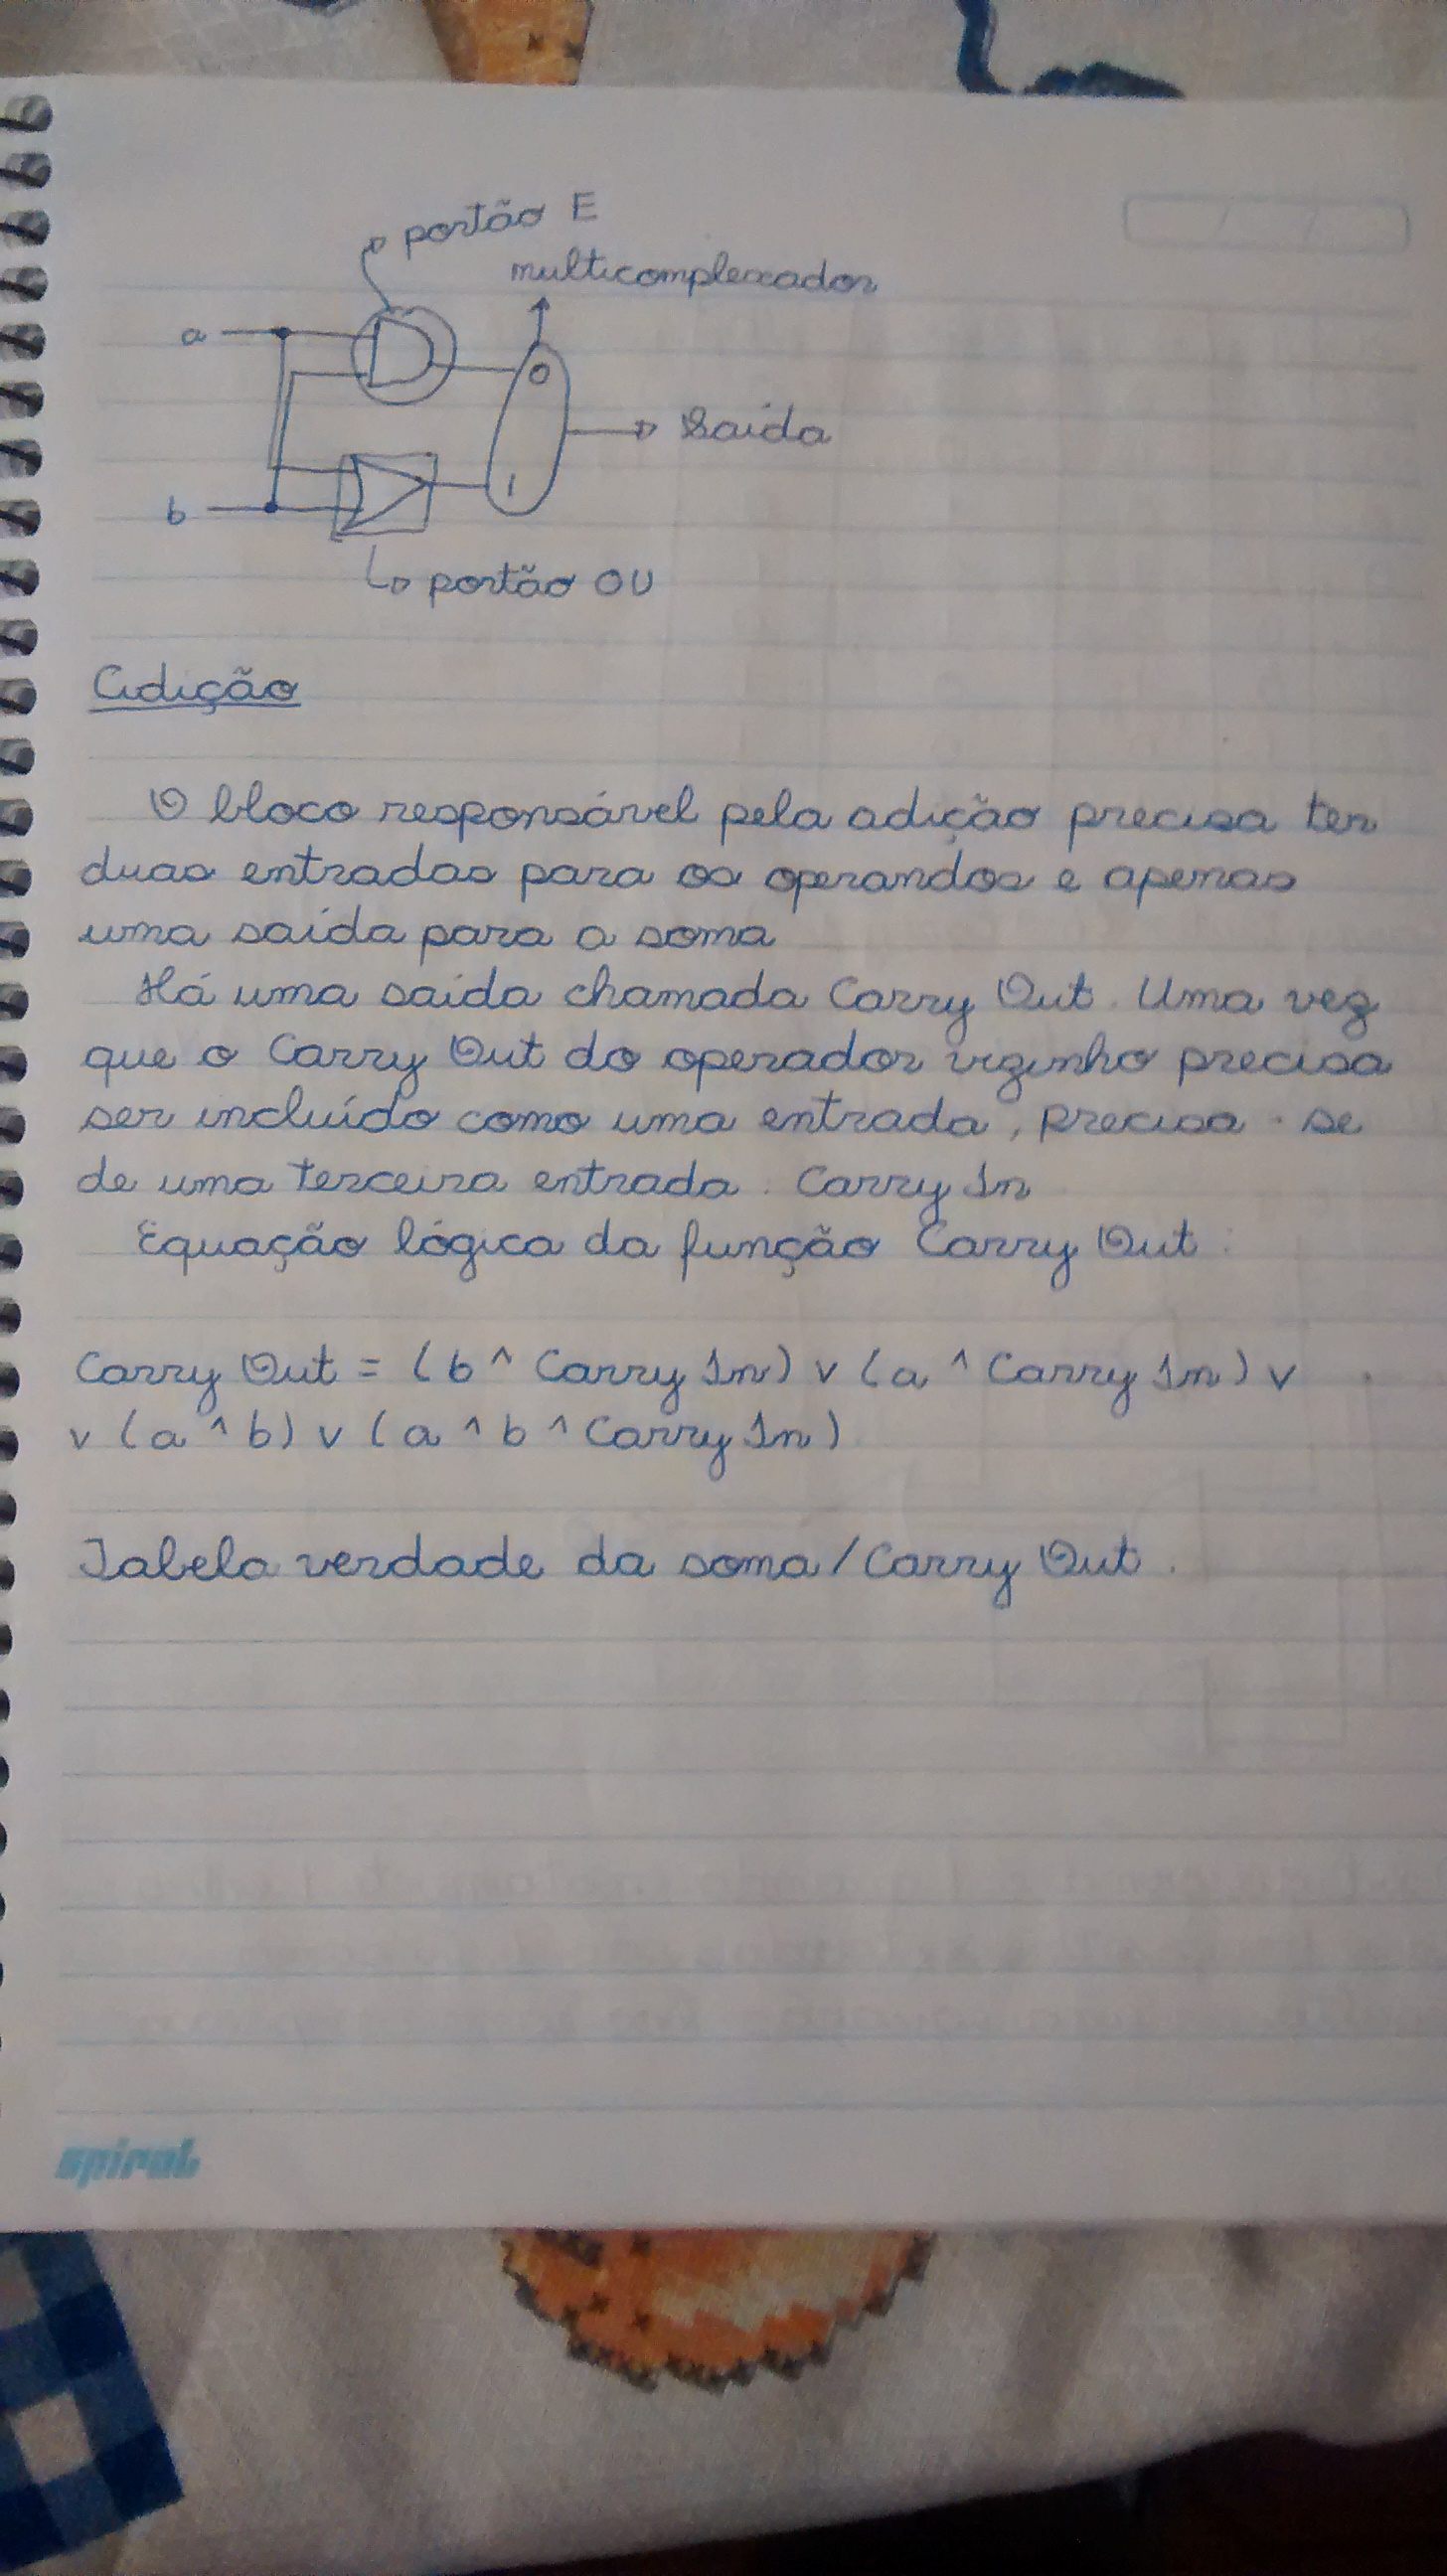 portão E
multicomplexador
a
0
Saída
1
b
portão OU
Adição
O bloco responsável pela adição precisa ter
duas entradas para os operandos e apenas
uma saída para a soma
Há uma saída chamada Carry Out. Uma vez
que o Carry Out do operador vizinho precisa
ser incluído como uma entrada, precisa-se
de uma terceira entrada: Carry In
Equação lógica da função Carry Out:
Carry Out = (b ^ Carry In) v (a ^ Carry In) v
v (a ^ b) v (a ^ b ^ Carry In)
Tabela verdade da soma/Carry Out.
spiral